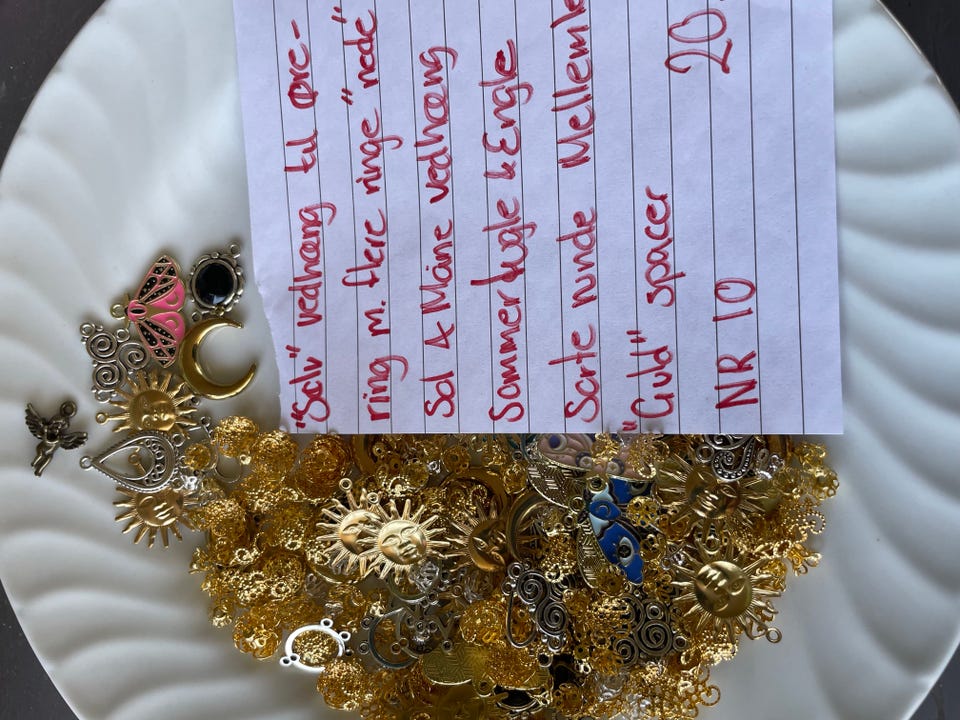 "Sølv" vedhæng til øre-
ring m. flere ringe "nede"
Sol & Måne vedhæng
Sommerfugle & Engle
Sorte runde Mellemle
"Guld" spacer
NR 10 20